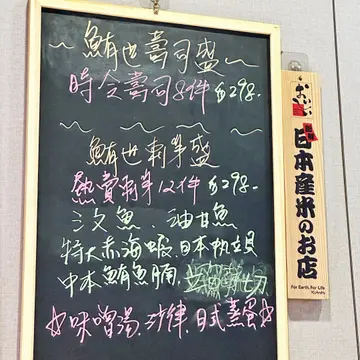 鮪世壽司盛
時令壽司8件 $298-
鮪世刺身盛
熱賣刺身12件 $298-
池魚、油甘魚
特大赤海蝦、日本帆立貝
中本鮪魚腩、
切
味噌湯、沙律、日式蒸蛋
おいしい
日本産米のお店
For Earth, For Life
Kubota